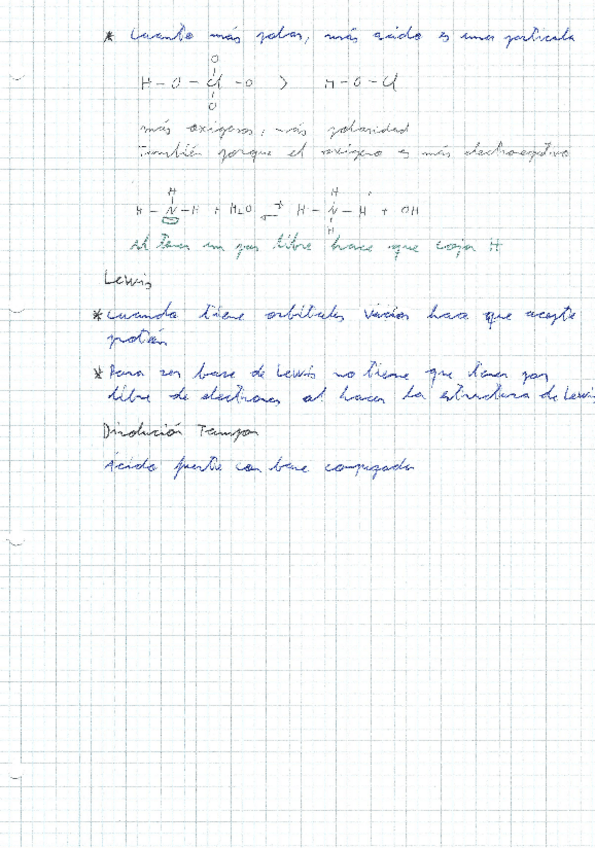 * Cuanto más polar, más ácido es una partícula
O
H - O - Cl - O > H - O - Cl
O
más oxígenos, más polaridad
También porque el oxígeno es más electronegativo
H H
H - N - H + H2O ⇄ H - N - H + OH
H
Al tener un par libre hace que coja H
Lewis
* Cuando tiene orbitales vacíos hace que acepte
protón
* Para ser base de Lewis no tiene que tener par
libre de electrones al hacer la estructura de Lewis
Disolución Tampon
Ácido fuerte con base conjugada